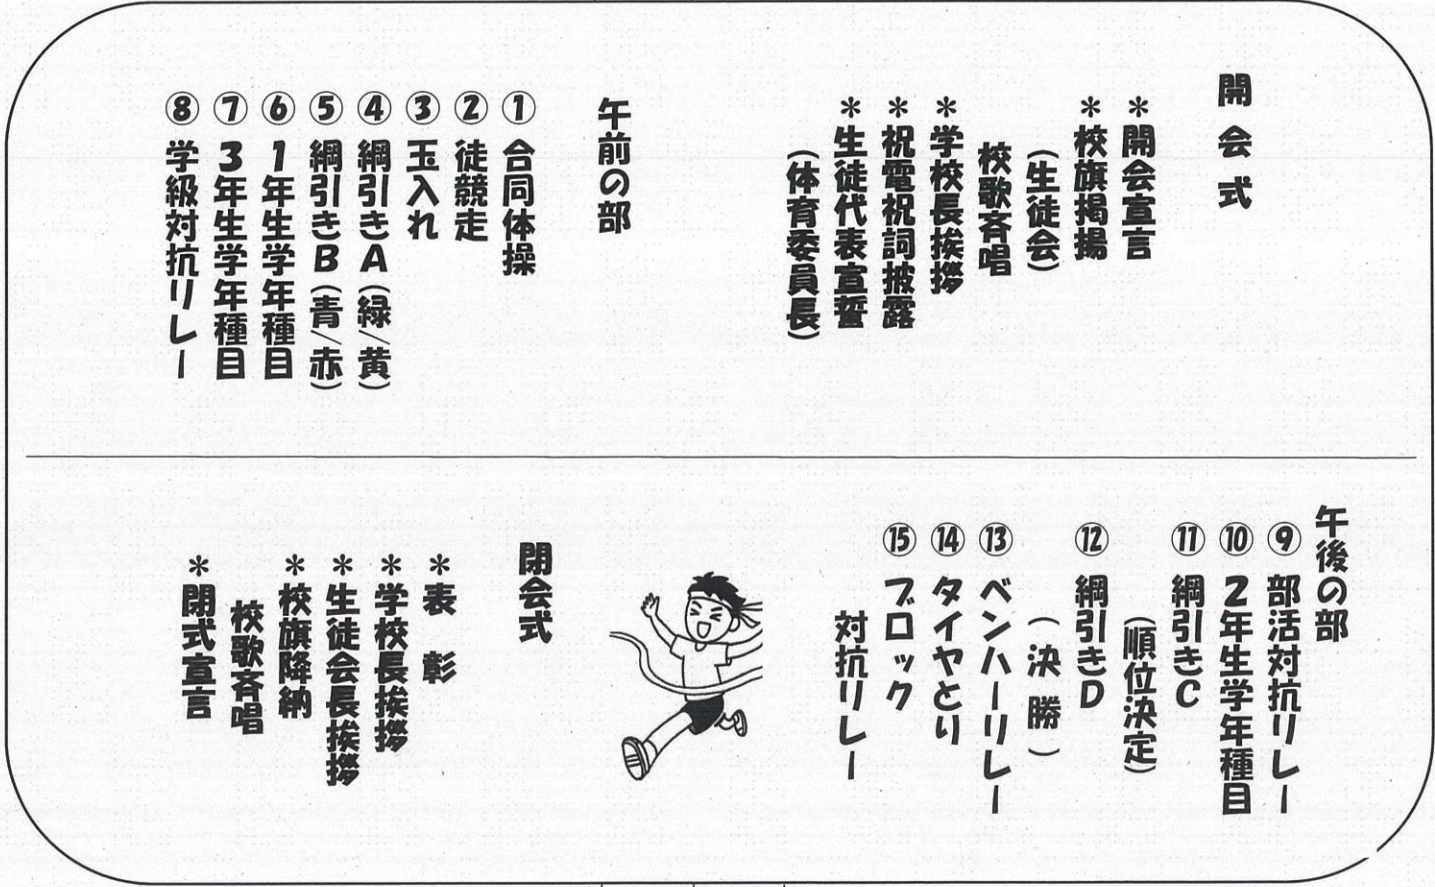 開会式
＊開会宣言
＊校旗掲揚
（生徒会）
校歌斉唱
＊学校長挨拶
＊祝電祝詞披露
＊生徒代表宣誓
（体育委員長）
午前の部
①合同体操
②徒競走
③玉入れ
④綱引きA（緑/黄）
⑤綱引きB（青/赤）
⑥1年生学年種目
⑦3年生学年種目
⑧学級対抗リレー
午後の部
⑨部活対抗リレー
⑩2年生学年種目
⑪綱引きC
（順位決定）
⑫綱引きD
（決勝）
⑬ベンハーリレー
⑭タイヤとり
⑮ブロック
対抗リレー
閉会式
＊表彰
＊学校長挨拶
＊生徒会長挨拶
＊校旗降納
校歌斉唱
＊閉式宣言